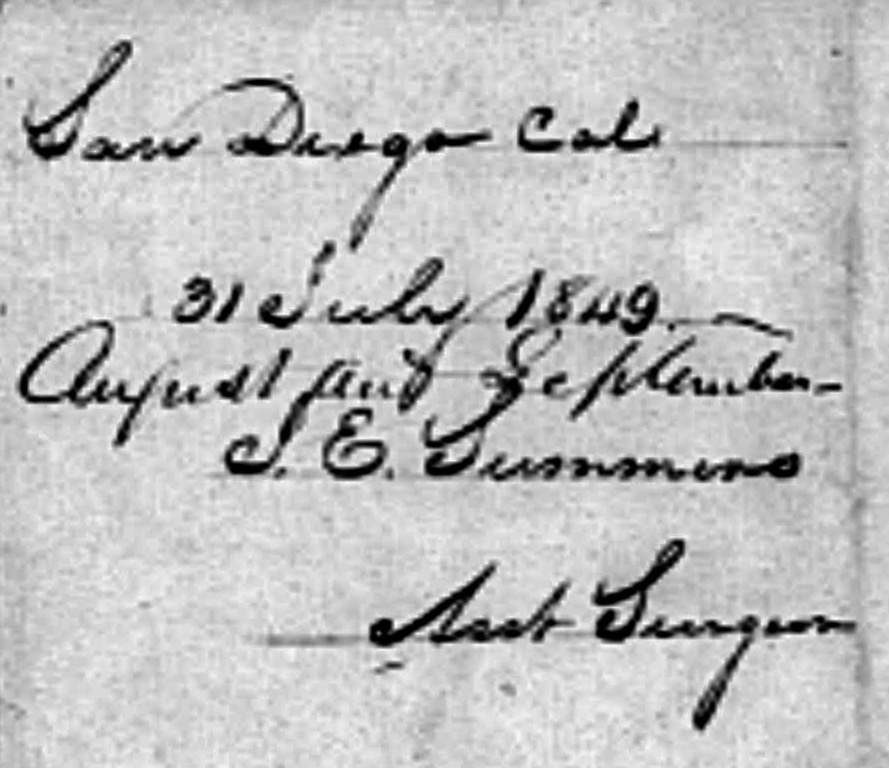 San Diego Cal
31 July 1849.
August and September
J. E. Summers
Asst Surgeon